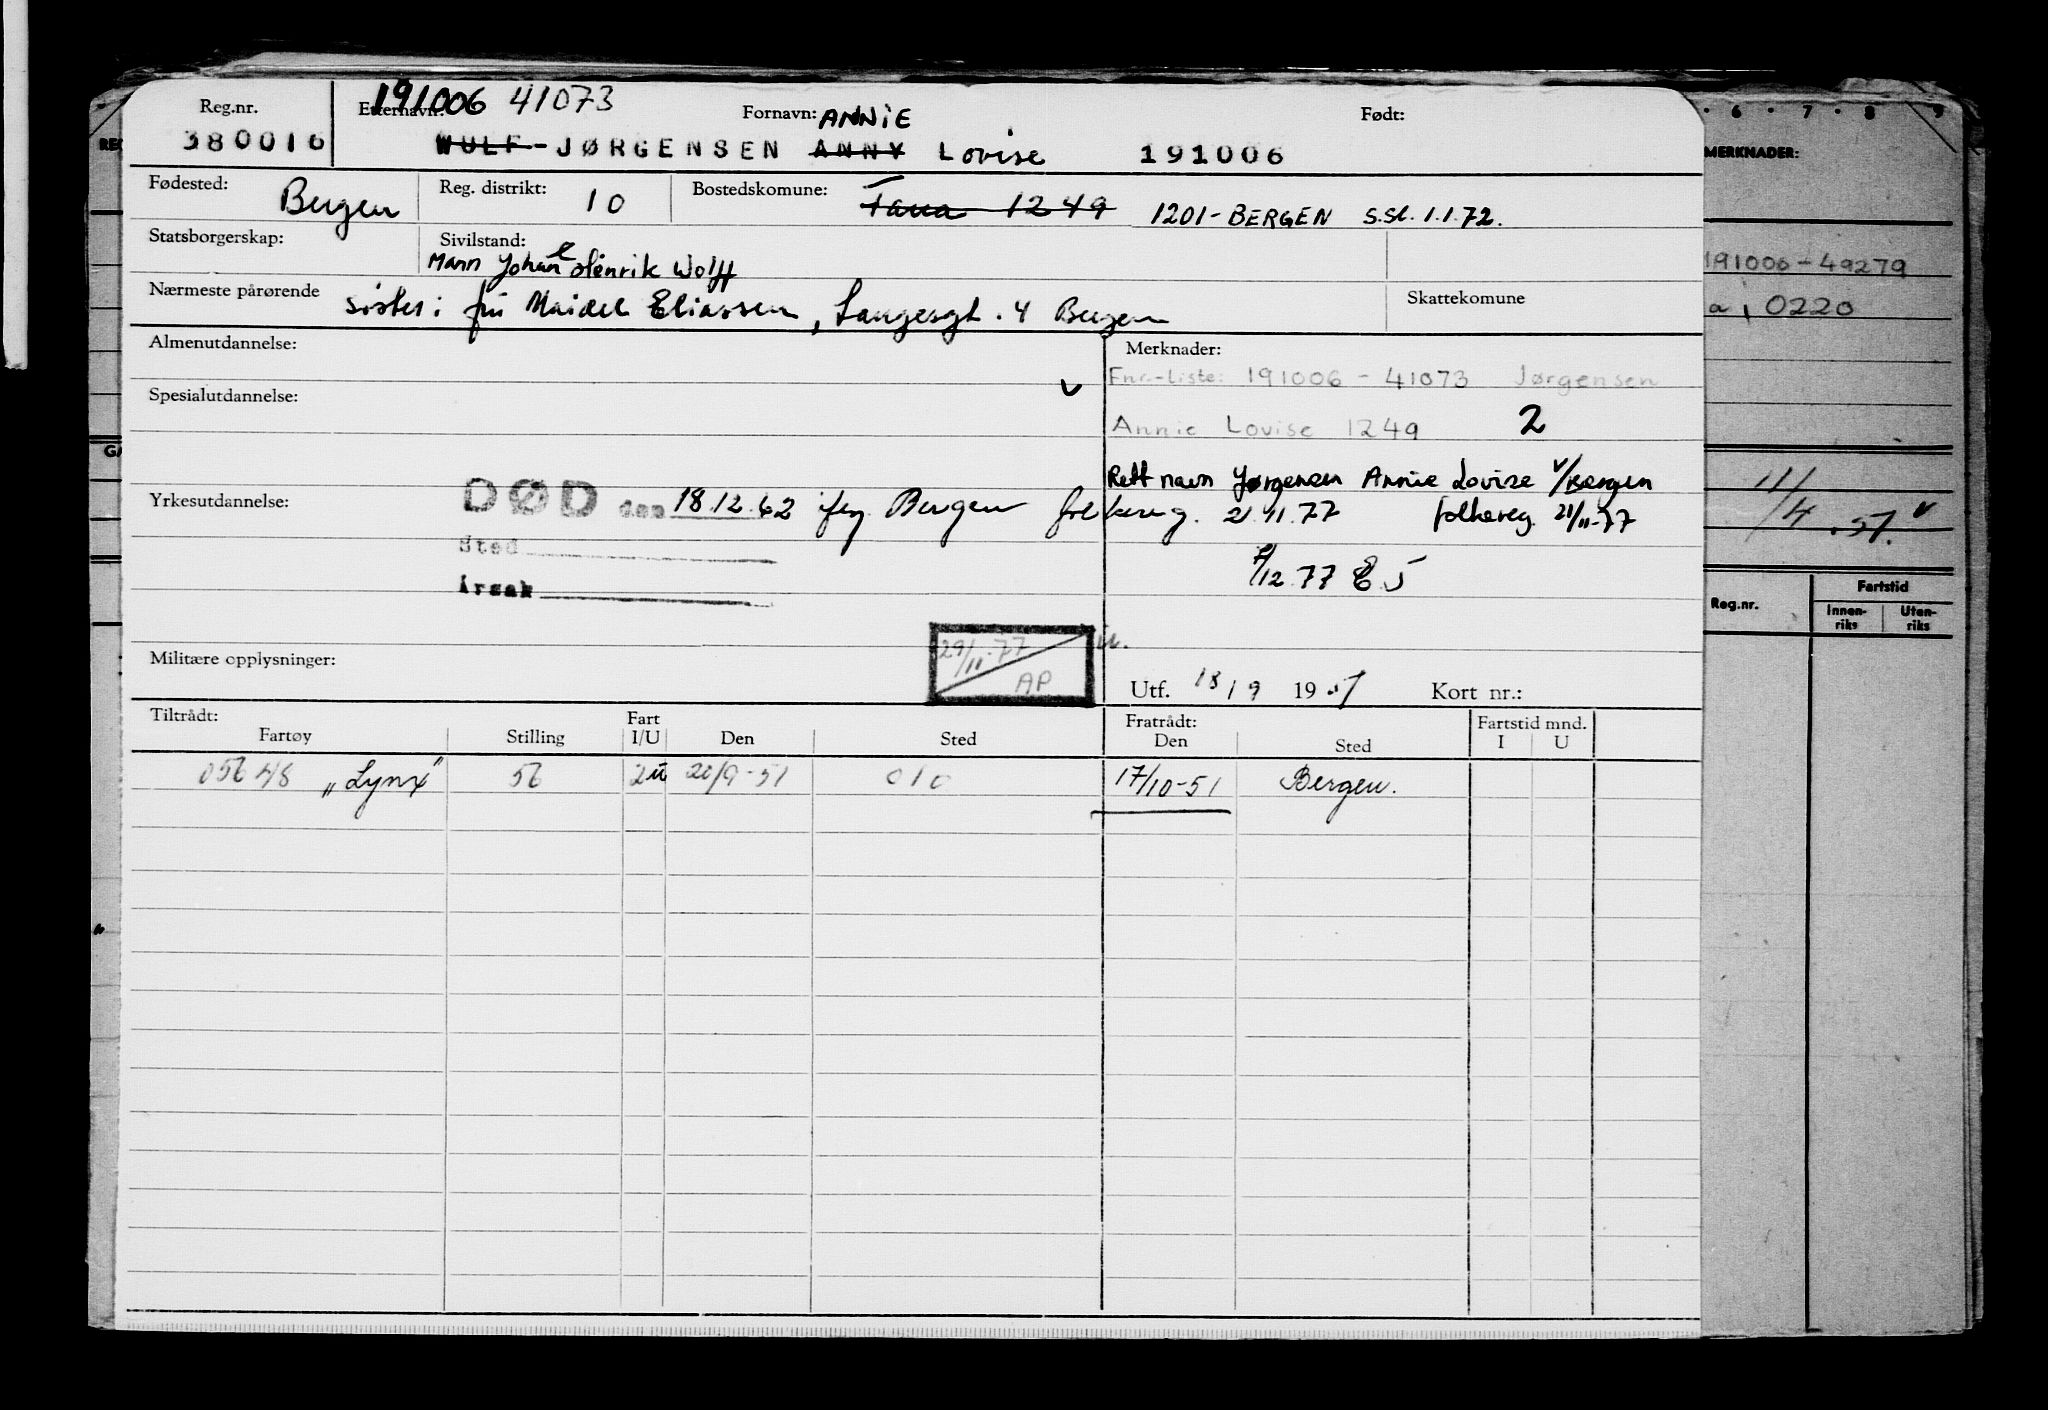 191006 41073
Reg.nr. Etternavn: Fornavn: ANNIE Født:
380016 WULF-JØRGENSEN ANNY Lovise 191006
Fødested: Bergen Reg. distrikt: 10 Bostedskomune: Fana 1249 1201-BERGEN s.sl. 1.1.72.
Statsborgerskap: Sivilstand:
Mann Johan Henrik Wolff
Nærmeste pårørende Søster: fru Maidel Eliassen, Langesgt. 4 Bergen Skattekomune
Almenutdannelse: Merknader:
Fnr.-Liste: 191006-41073 Jørgensen
Spesialutdannelse:
Annie Lovise 1249 2
Rett navn Jørgensen Annie Lovise v/Bergen
Yrkesutdannelse: DØD den 18.12.62 iføg Bergen folkereg. 21.11.77 folkereg. 21/11-77
Sted
Årsak
7/12.77 EJ
Militære opplysninger: 29/11-77 AP
Utf. 18/9 1951 Kort nr.:
Tiltrådt: Fratrådt:
Fartøy Stilling Fart I/U Den Sted Den Sted Fartstid mnd. I U
05648 "Lynx" 56 2u 20/9-51 010 17/10-51 Bergen.
6 7 8 9
MERKNADER:
191006-49279
0220
11/4.57. v
Reg.nr. Fartstid
Innen-riks Uten-riks